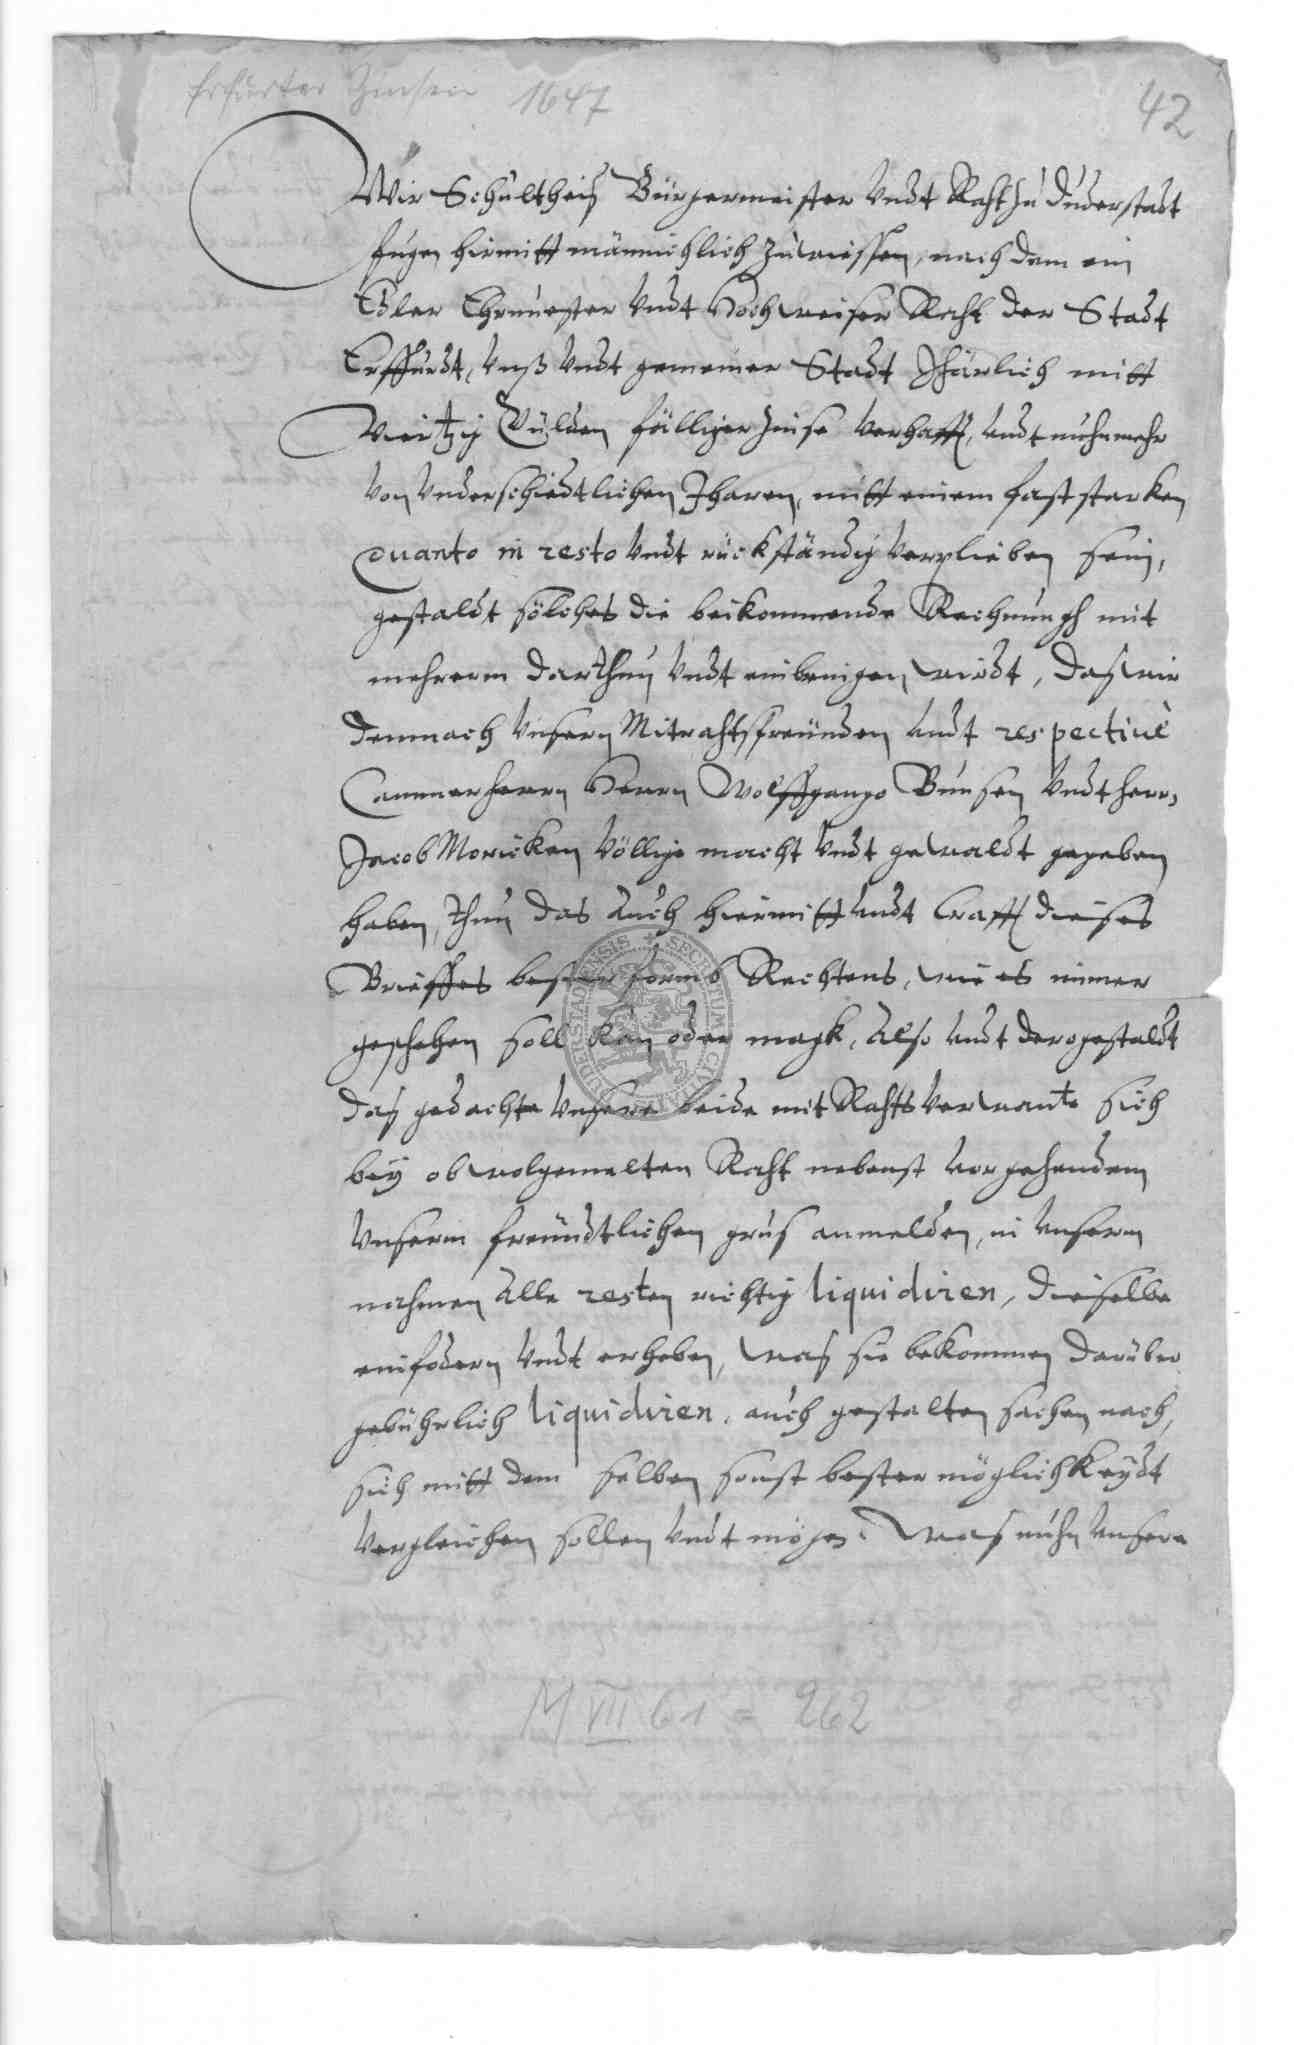 Erfurter Zinsen 1647
42
Wir Schultheis Bürgermeister Vndt Raht zu Duderstadt
fugen hirmitt männichlich zu wissen, nach dem ein
Edler Ehrnuester Vndt Hochweiser Raht der Stadt
Erffurdt, Vnß Vndt gemeiner Stadt Jhärlich mitt
Viertzig Gülden fälliger Zinse verhafft, Vndt nuhnmehr
von Vnderschiedtlichen Jharen, mitt einem fast starken
quanto in resto Vndt rückständig verplieben sein,
gestaldt sölches die beikommende Rechnungh mit
mehrerm darthun Vndt einbringen wirdt, das wir
demnach Vnsern Mitrahtsfreünden Vndt respectiuè
Cammerherrn Herrn Wolffgango Bunsen Vndt herrn
Jacob Moricken völlige macht Vndt gewaldt gegeben
haben, Thun das auch hiermitt Vndt Crafft dieses
Brieffes bester formb Rechtens, wie es immer
geschehen soll kan oder magk, also Vndt dergestaldt
das gedachte Vnsere beide mit Rahts Verwante sich
bey obwolgemelten Raht nebenst vorgehendem
Vnserm freündtlichen grus anmelden, in Vnserm
nahmen alle resten richtig liquidiren, dieselbe
einfodern Vndt erheben, was sie bekommen darüber
gebührlich liquidiren, auch gestalten sachen nach,
sich mitt dem selben sonst bester möglichkeydt
Vergleichen sollen Vndt mögen. Was nuhn Vnsere
M VII 61 = 262